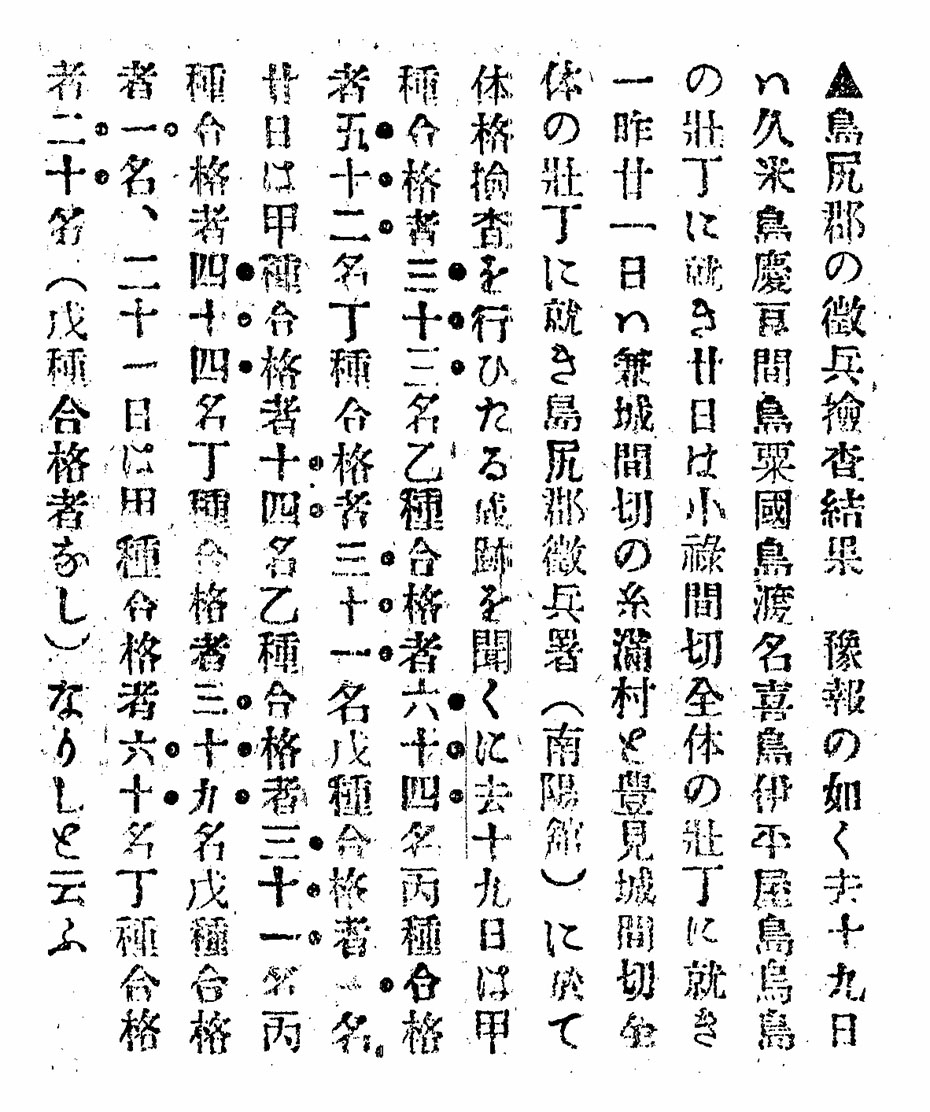 ▲島尻郡の徴兵撿査結果　豫報の如く去十九日
ハ久米島慶良間島粟國島渡名喜島伊平屋島鳥島
の壯丁に就き廿日は小祿間切全体の壯丁に就き
一昨廿一日ハ兼城間切の糸滿村と豊見城間切全
体の壯丁に就き島尻郡徴兵署（南陽館）に於て
体格撿査を行ひたる成跡を聞くに去十九日は甲
種合格者三十三名乙種合格者六十四名丙種合格
者五十二名丁種合格者三十一名戊種合格者一名
廿日は甲種合格者十四名乙種合格者三十一名丙
種合格者四十四名丁種合格者三十九名戊種合格
者一名、二十一日は甲種合格者六十名丁種合格
者二十名（戊種合格者なし）なりしと云ふ